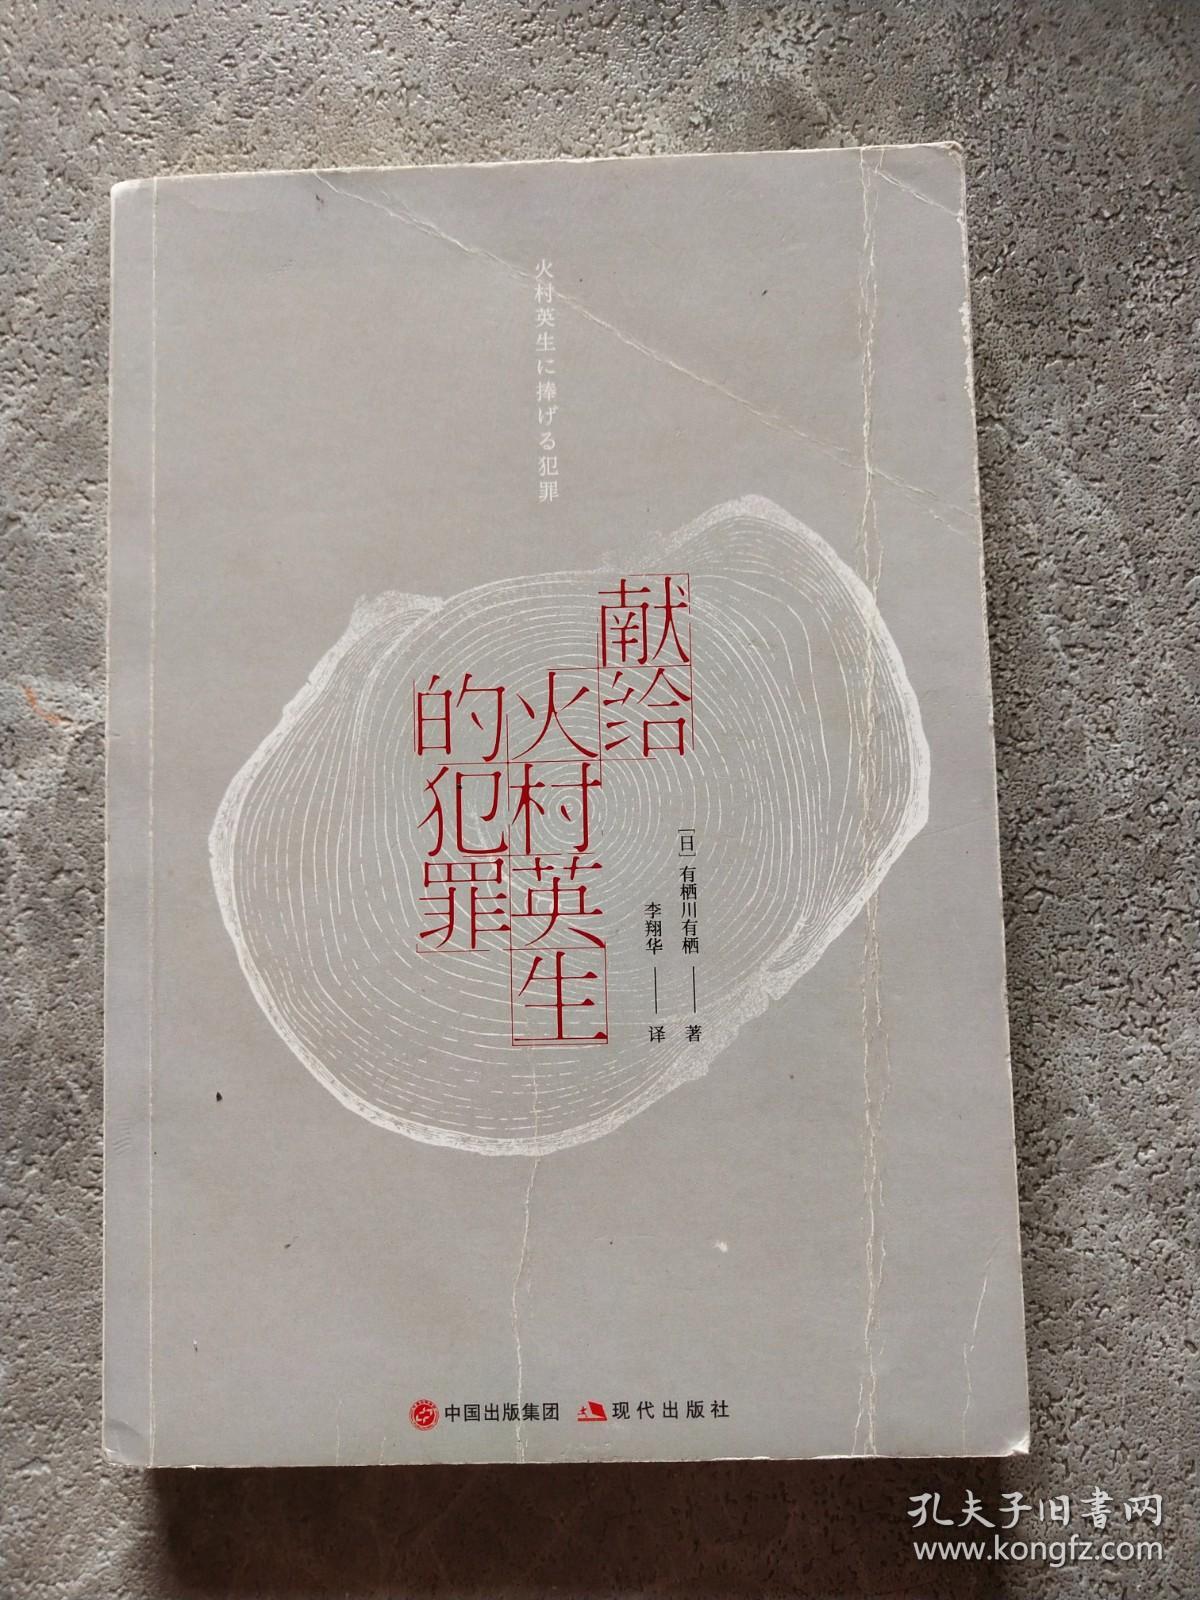 火村英生に捧げる犯罪
献给
火村英生
的犯罪
[日]有栖川有栖——著
李翔华——译
中国出版集团 现代出版社
孔夫子旧書网
www.kongfz.com